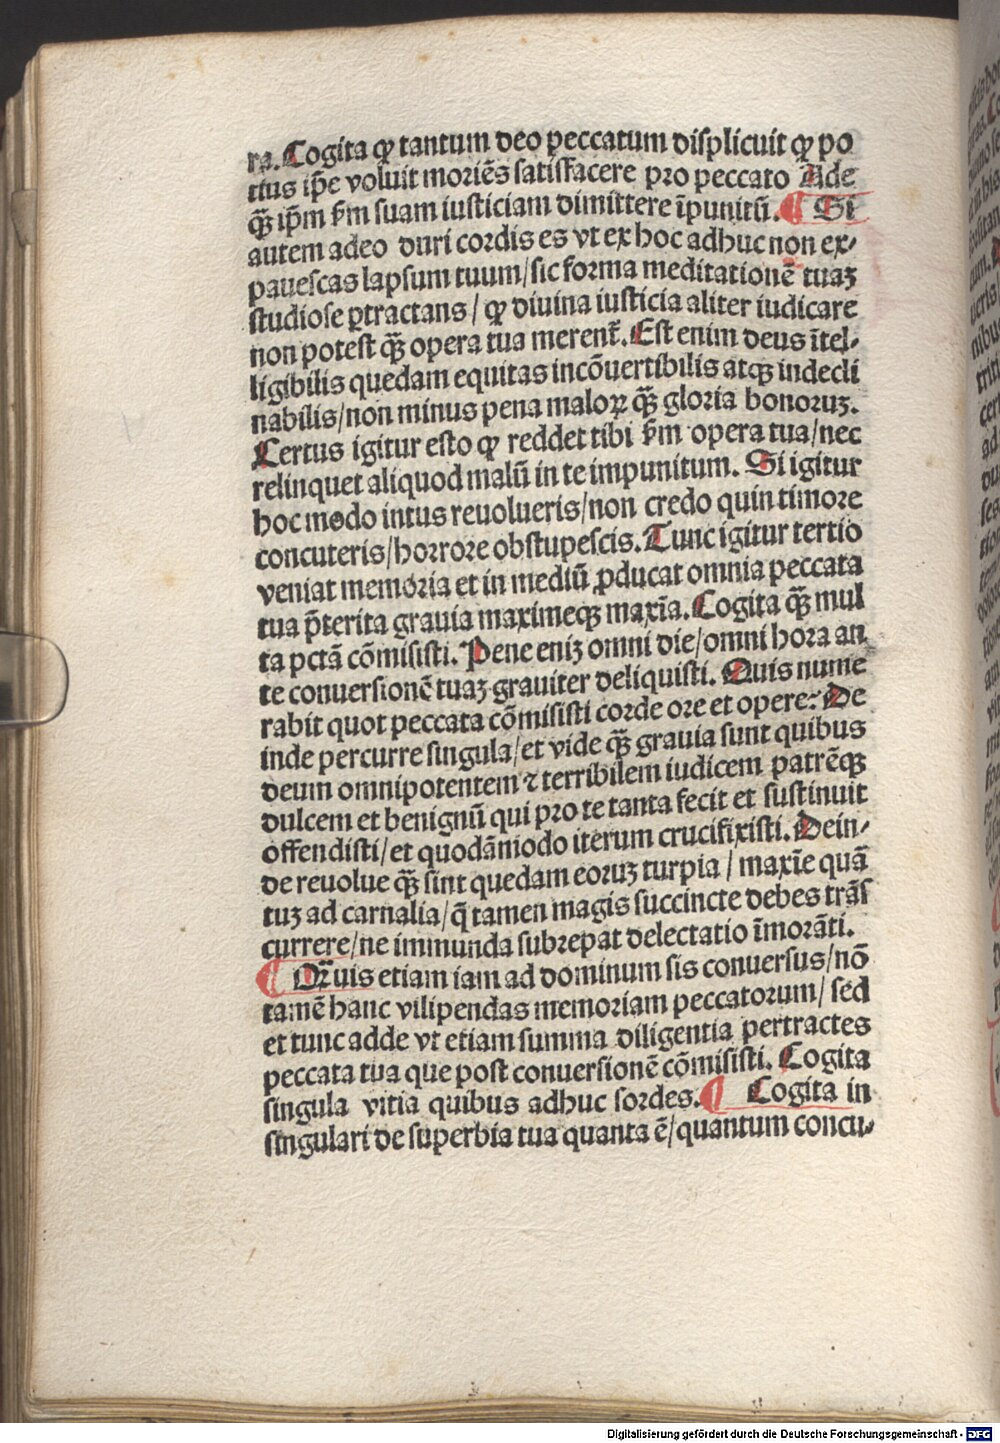 ra. Cogita qꝫ tantum deo peccatum displicuit qꝫ po
tius ip̄e voluit moriēs satisfacere pro peccato Ade
qꝫ̄ ip̄m ẜm suam iusticiam dimittere īpunitū. ¶ Si
autem adeo duri cordis es vt ex hoc adhuc non ex⸗
pauescas lapsum tuum/sic forma meditationē tuaꝫ
studiose ꝑtractans/ qꝫ diuina iusticia aliter iudicare
non potest qꝫ̄ opera tua merent᷑. Est enim deus ītel⸗
ligibilis quedam equitas incōuertibilis atqꝫ indecli
nabilis/non minus pena maloꝝ qꝫ̄ gloria bonoruꝫ.
Certus igitur esto qꝫ reddet tibi ẜm opera tua/nec
relinquet aliquod malū in te impunitum. Si igitur
hoc modo intus reuolueris/non credo quin timore
concuteris/horrore obstupescis. Tunc igitur tertio
veniat memoria et in mediū ꝓducat omnia peccata
tua p̄terita grauia maximeqꝫ maxīa. Cogita qꝫ̄ mul
ta pctā cōmisisti. Pene eniꝫ omni die/omni hora an
te conuersionē tuaꝫ grauiter deliquisti. Quis nume
rabit quot peccata cōmisisti corde ore et opere? De
inde percurre singula/et vide qꝫ̄ grauia sunt quibus
deum omnipotentem ⁊ terribilem iudicem patrēqꝫ
dulcem et benignū qui pro te tanta fecit et sustinuit
offendisti/et quodāmodo iterum crucifixisti. Dein⸗
de reuolue qꝫ̄ sint quedam eoruꝫ turpia / maxīe quā
tuꝫ ad carnalia/q̄ tamen magis succincte debes trās
currere/ne immunda subrepat delectatio īmorāti.
¶ Qꝫuis etiam iam ad dominum sis conuersus/nō
tamē hanc vilipendas memoriam peccatorum/ sed
et tunc adde vt etiam summa diligentia pertractes
peccata tua que post conuersionē cōmisisti. Cogita
singula vitia quibus adhuc sordes. ¶ Cogita in
singulari de superbia tua quanta ē/quantum concu⸗
Digitalisierung gefördert durch die Deutsche Forschungsgemeinschaft - DFG